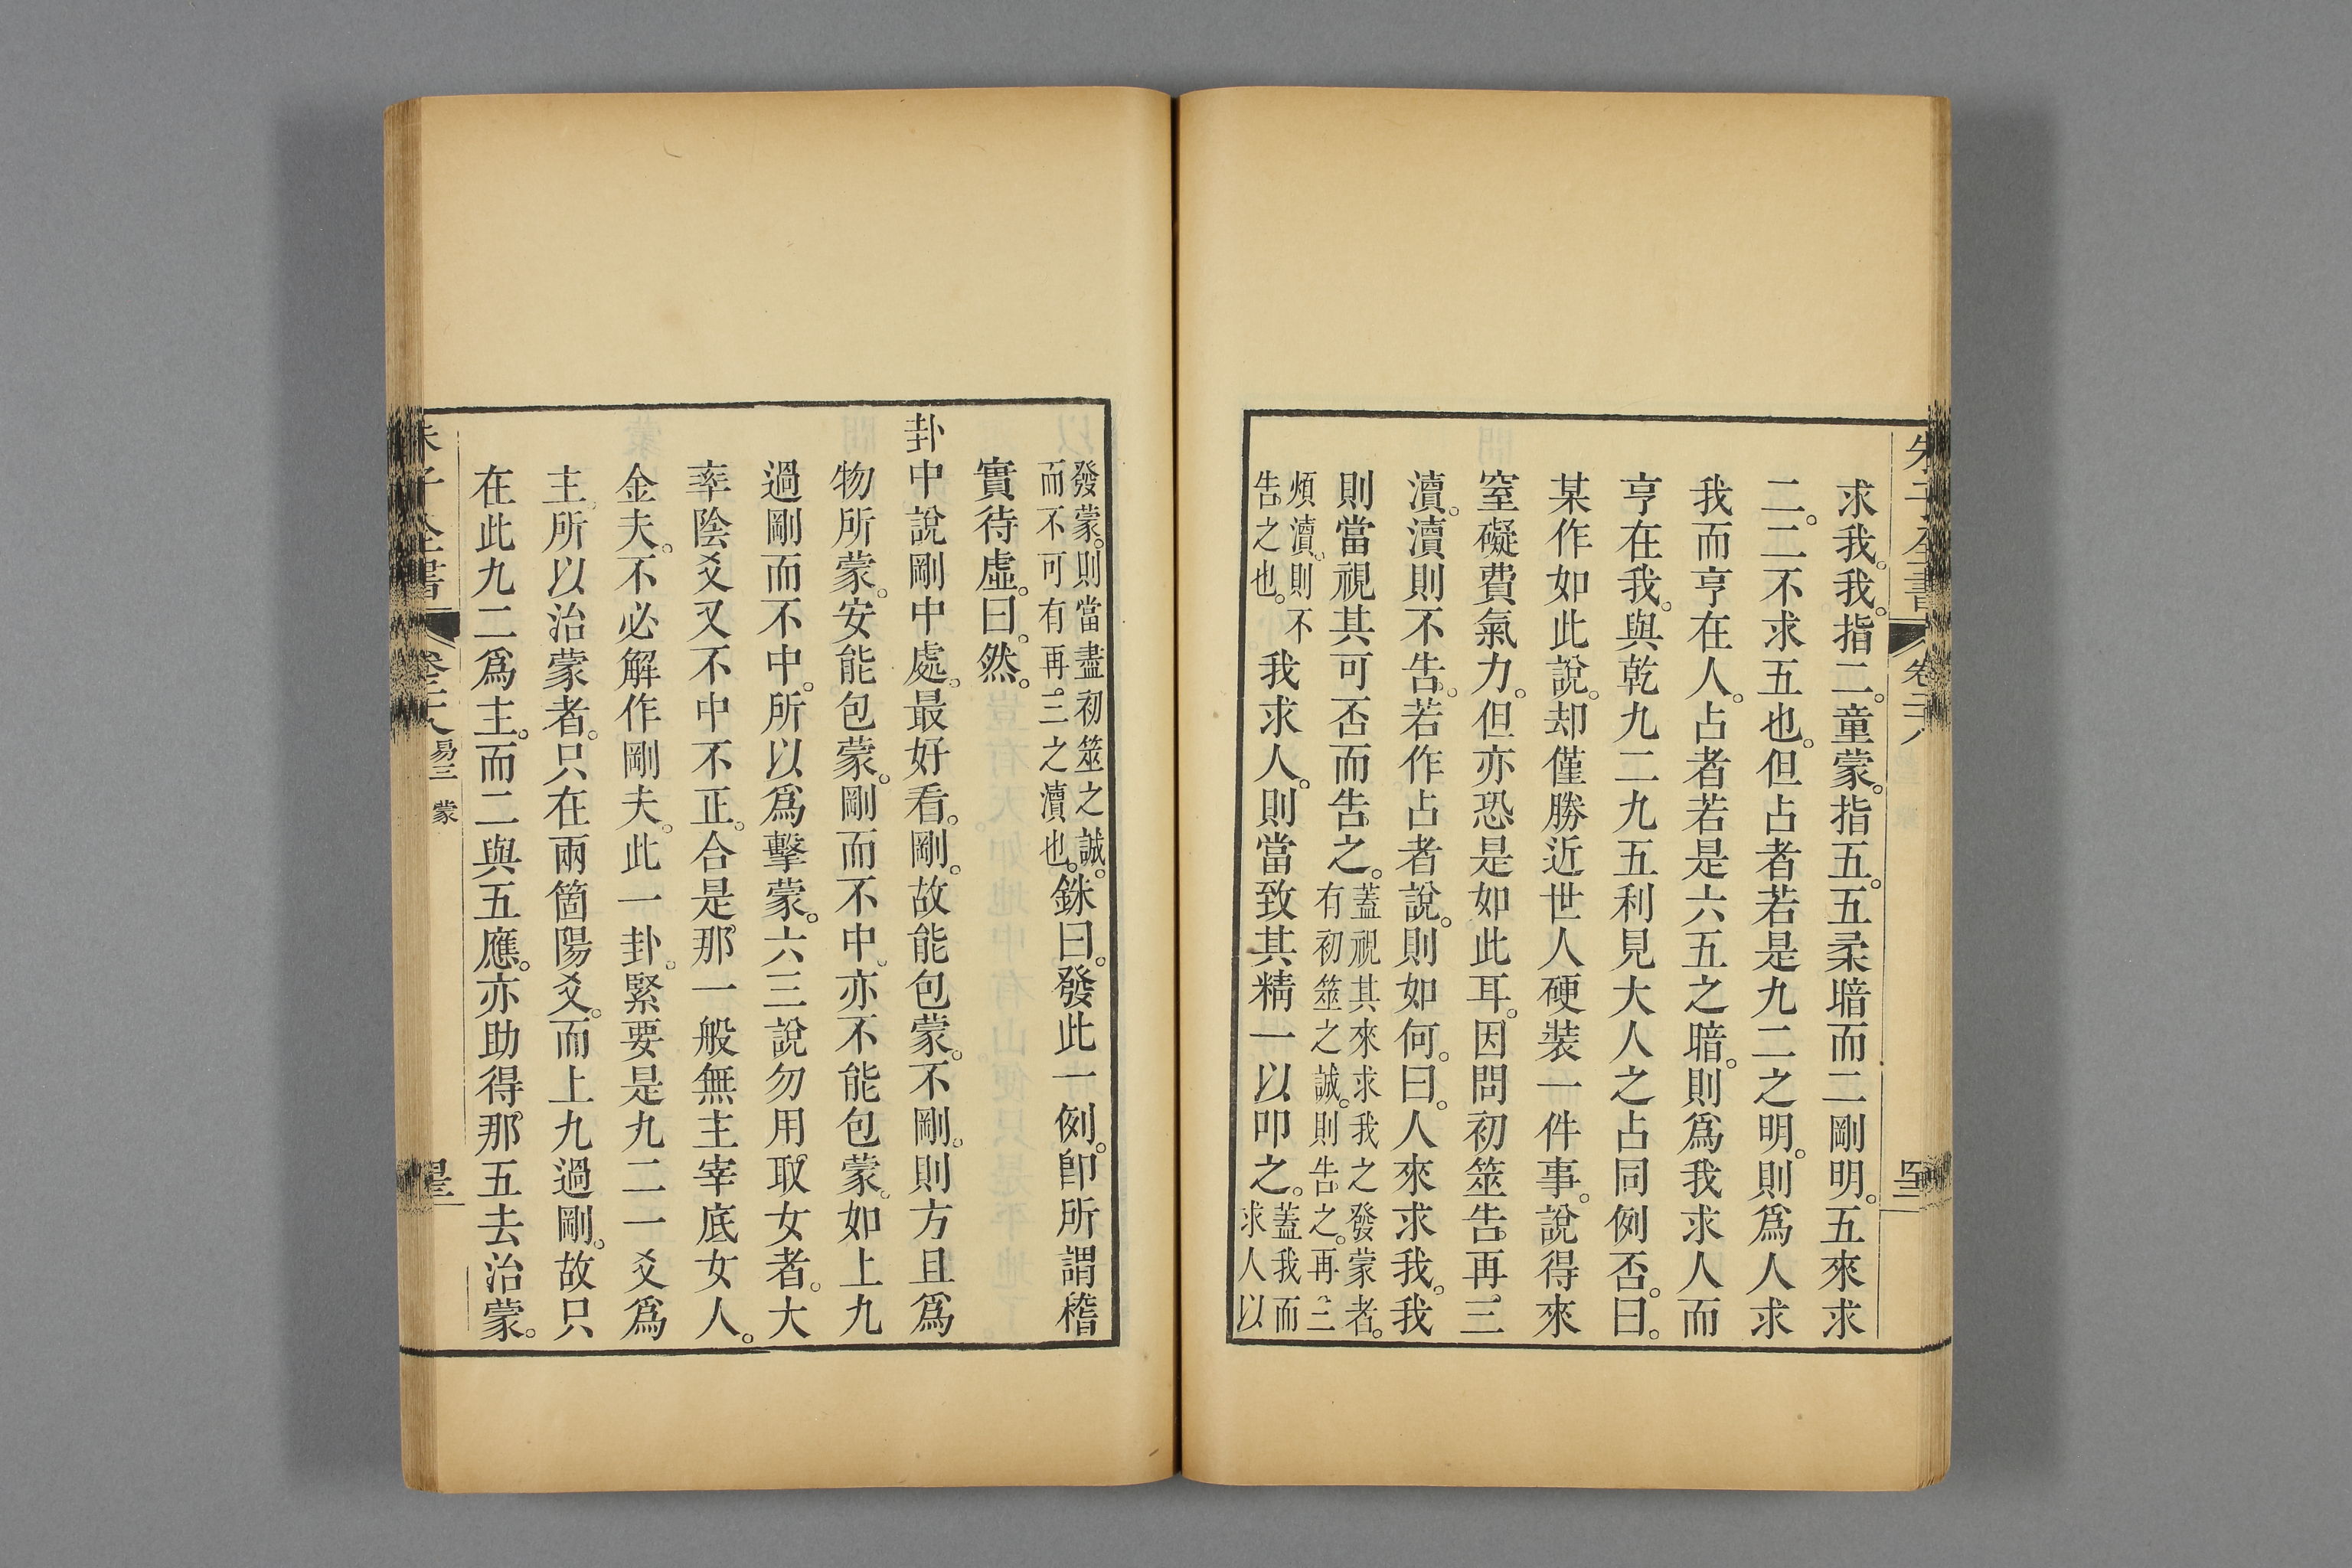 朱子全書 卷二十八
求我。我。指二。童蒙。指五。五柔暗而二剛明。五來求
二。二不求五也。但占者若是九二之明。則爲人求
我而亨在人。占者若是六五之暗。則爲我求人而
亨在我。與乾九二九五利見大人之占同例否。曰。
某作如此說。却僅勝近世人硬裝一件事。說得來
窒礙費氣力。但亦恐是如此耳。因問初筮告。再三
瀆。瀆則不告。若作占者說。則如何。曰。人來求我。我
則當視其可否而告之。蓋視其來求我之發蒙者。有初筮之誠。則告之。再三
煩瀆。則不告之也。我求人。則當致其精一以叩之。蓋我而求人以
發蒙。則當盡初筮之誠。而不可有再三之瀆也。銖曰。發此一例。卽所謂稽
實待虛。曰。然。
卦中說剛中處。最好看。剛。故能包蒙。不剛。則方且爲
物所蒙。安能包蒙。剛而不中。亦不能包蒙。如上九
過剛而不中。所以爲擊蒙。六三說勿用取女者。大
率陰爻又不中不正。合是那一般無主宰底女人。
金夫。不必解作剛夫。此一卦。緊要是九二一爻爲
主。所以治蒙者。只在兩箇陽爻。而上九過剛。故只
在此九二爲主。而二與五應。亦助得那五去治蒙。
子全書 易三 蒙